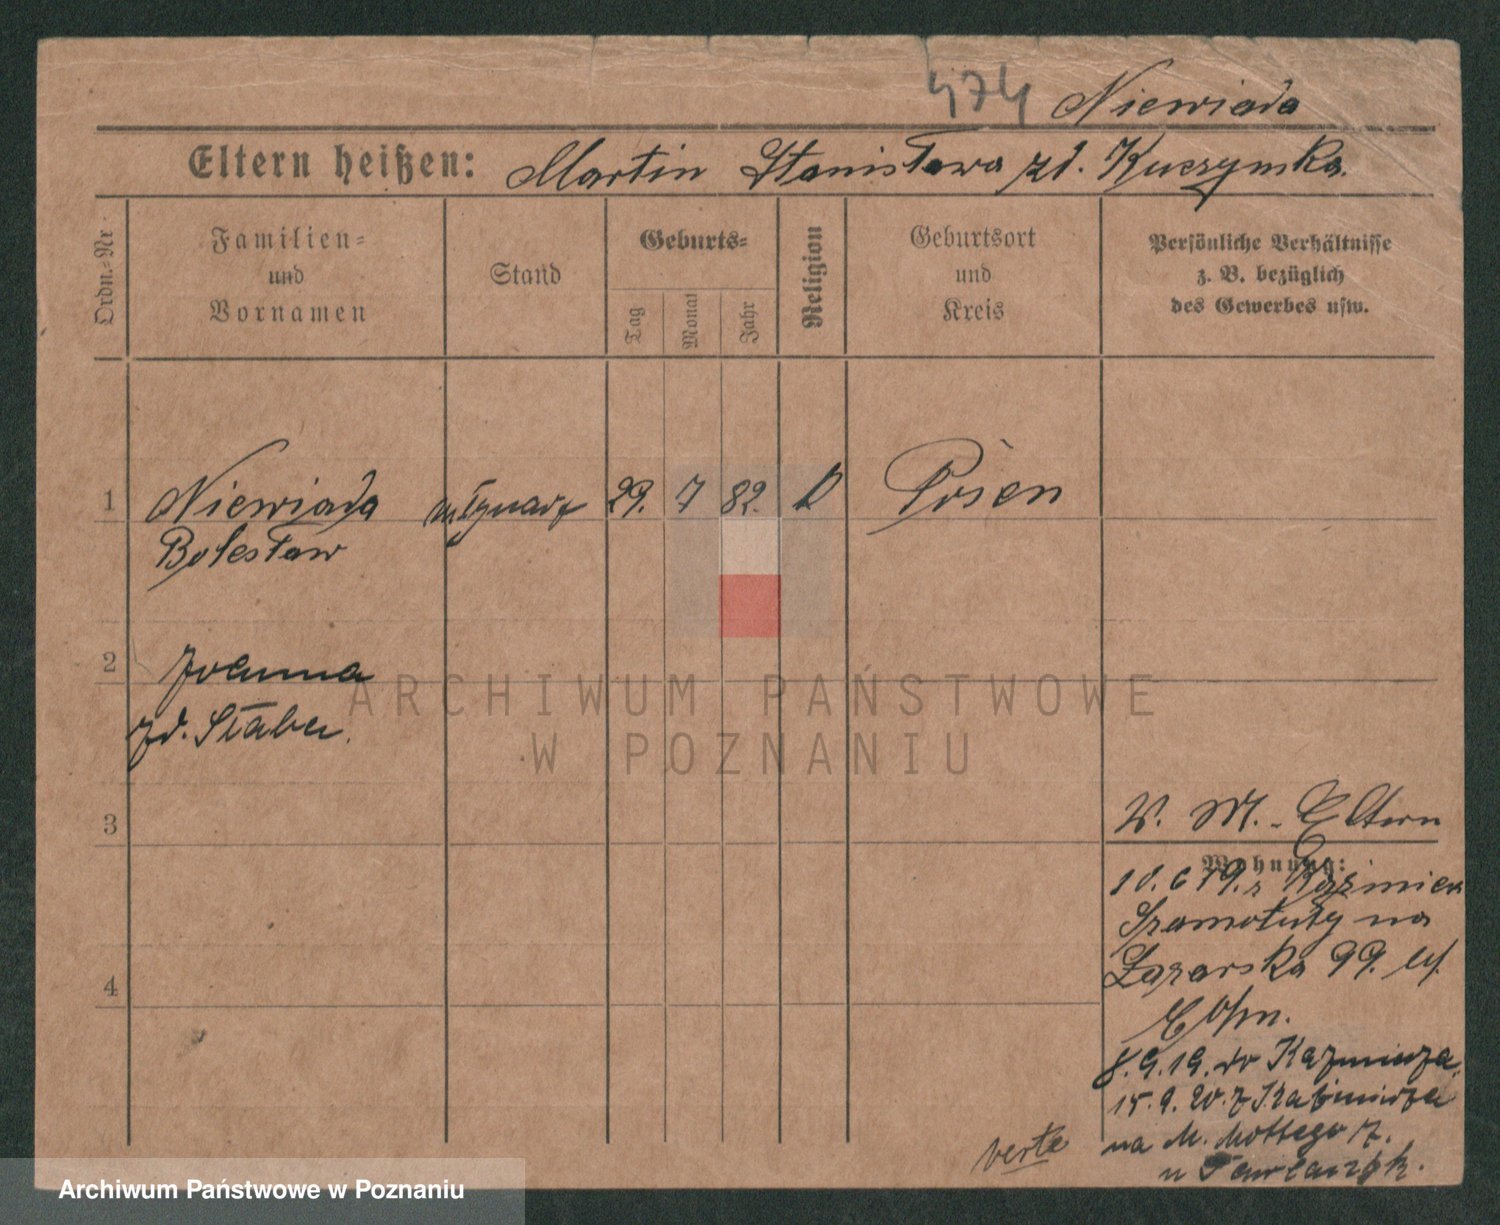 474 Niewiada
Eltern heißen: Martin Stanisława zd. Kuczymka.
Ordn.-Nr
Familien-
und
Vornamen
Stand
Geburts-
Tag
Monat
Jahr
Religion
Geburtsort
und
Kreis
Persönliche Verhältnisse
z. B. bezüglich
des Gewerbes usw.
1 Niewiada młynarz 29. 7 82. k Posen
Bolesław
2 Joanna
zd. Staber.
ARCHIWUM PAŃSTWOWE
W POZNANIU
3
W. M. - Eltern
Wohnung:
10.6 19. z Kazmierz
Szamotuły na
Lazarska 99.
4
8.9.19. do Kazmierza.
15.9.20. z Kazimierza
na M. Mottego 7.
u Pawlaczyk.
verte
Archiwum Państwowe w Poznaniu